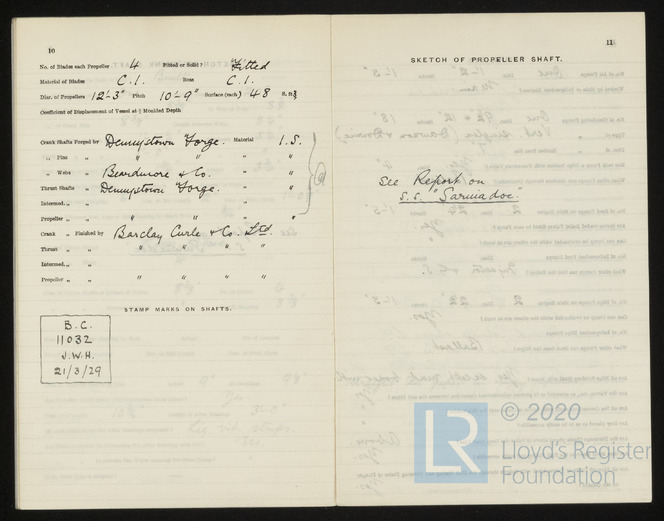 10
No. of Blades each Propeller 4 Fitted or Solid? Fitted
Material of Blades C.I. Boss C.I.
Diar. of Propellers 12'-3" Pitch 10'-9" Surface (each) 48 S. ft.
Coefficient of Displacement of Vessel at ½ Moulded Depth
Crank Shafts Forged by Dennystown Forge. Material I.S.
„ Pins „ " " "
„ Webs „ Beardmore & Co. "
Thrust Shafts „ Dennystown Forge. "
Intermed. „ „
Propeller „ „ " " "
Crank „ Finished by Barclay Curle & Co. Ltd.
Thrust „ „ " " "
Intermed. „ „
Propeller „ „ " " "
STAMP MARKS ON SHAFTS.
B.C.
11032
J.W.H.
21/3/29
11
SKETCH OF PROPELLER SHAFT.
See Report on
S.S. "Sarniadoc"
LR © 2020
Lloyd's Register
Foundation